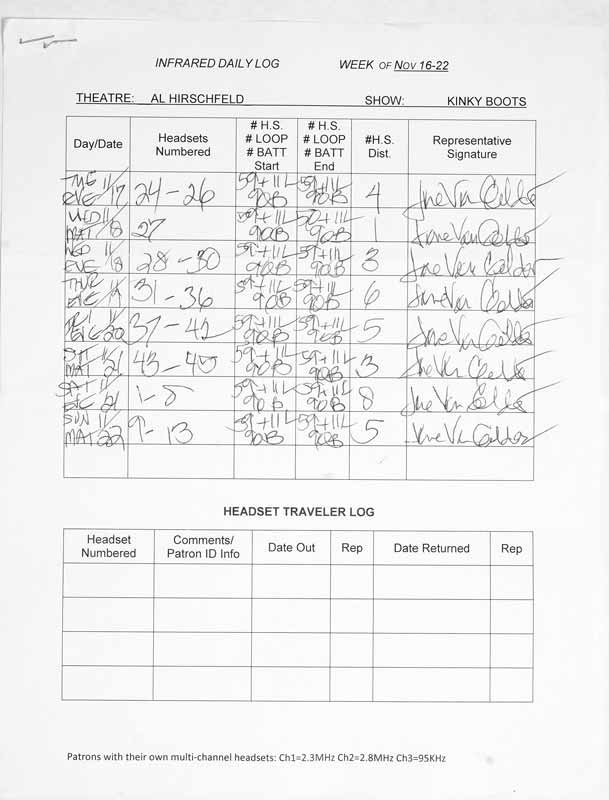 INFRARED DAILY LOG WEEK OF NOV 16-22
THEATRE: AL HIRSCHFELD SHOW: KINKY BOOTS
Day/Date Headsets Numbered # H.S. # LOOP # BATT Start # H.S. # LOOP # BATT End #H.S. Dist. Representative Signature
TUE 11/17 EVE 24-26 59+11L 90B 59+11L 90B 4 Jane Van Gelder
WED 11/18 MAT 27 59+11L 90B 59+11L 90B 1 Jane Van Gelder
WED 11/18 EVE 28-30 59+11L 90B 59+11L 90B 3 Jane Van Gelder
THUR 11/19 EVE 31-36 59+11L 90B 59+11L 90B 6 Jane Van Gelder
FRI 11/20 EVE 37-42 59+11L 90B 59+11L 90B 5 Jane Van Gelder
SAT 11/21 MAT 43-45 59+11L 90B 59+11L 90B 3 Jane Van Gelder
SAT 11/21 EVE 1-8 59+11L 90B 59+11L 90B 8 Jane Van Gelder
SUN 11/22 MAT 9-13 59+11L 90B 59+11L 90B 5 Jane Van Gelder
HEADSET TRAVELER LOG
Headset Numbered Comments/ Patron ID Info Date Out Rep Date Returned Rep
Patrons with their own multi-channel headsets: Ch1=2.3MHz Ch2=2.8MHz Ch3=95KHz